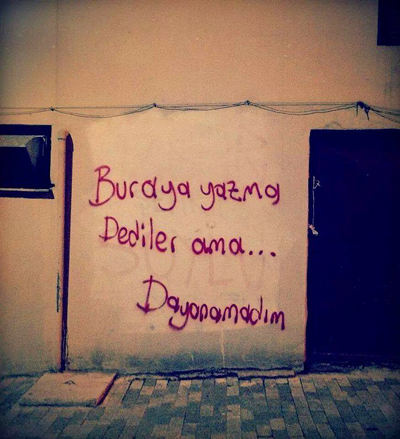 Buraya yazma
Dediler ama...
Dayanamadım